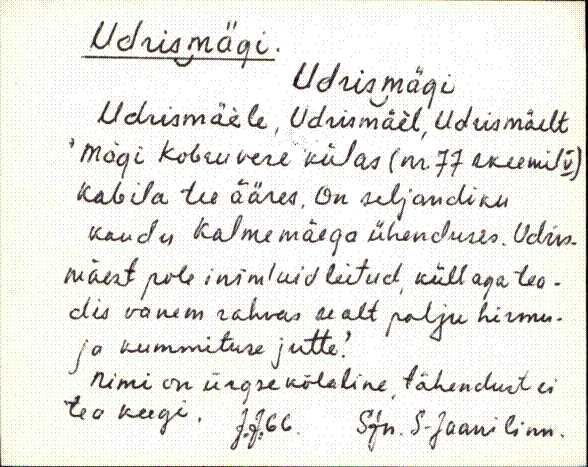 Udrismägi.
Udrismägi
Udrismäele, Udrismäel, Udrismäelt
'Mägi Kobruvere külas (nr. 77 skeemil V)
Kabila tee ääres. On seljandiku
kaudu Kalmemäega ühenduses. Udris-
mäest pole inimluid leitud, küll aga tea-
dis vanem rahvas sealt palju hirmu-
ja kummituse jutte.'
Nimi on ürgse kõlaline, tähendust ei
tea keegi. J.J. 66. SJn. S-Jaani linn.